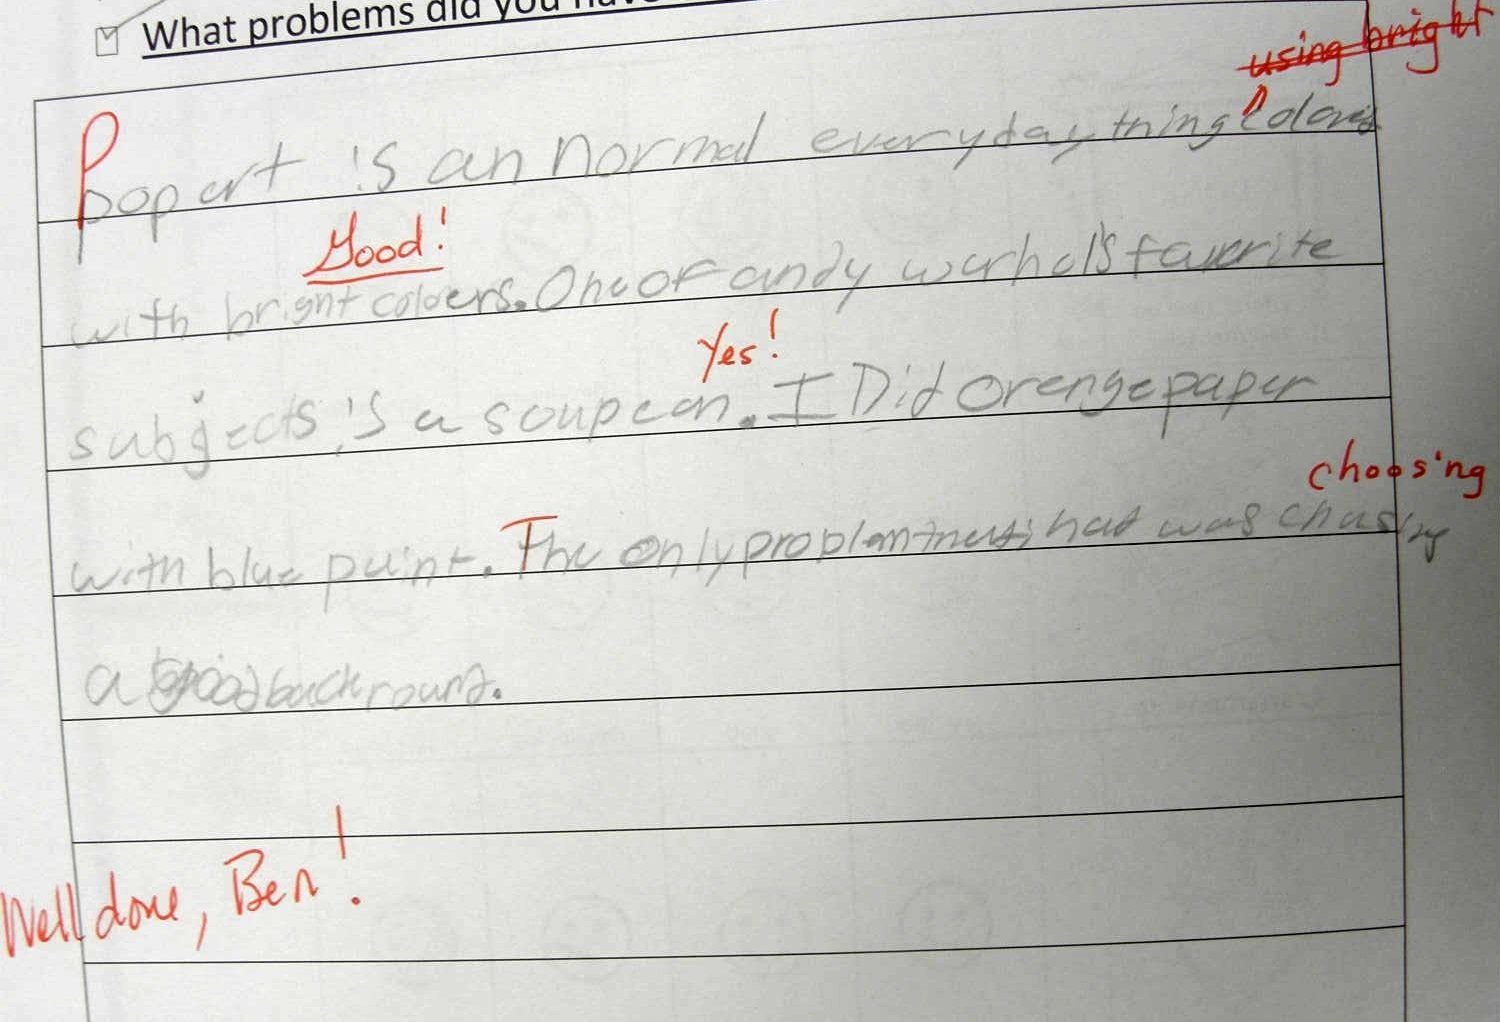 What problems did you have
using bright
Pop art is an normal everyday thing
Good!
with bright coloers. One of andy warhol's favorite
Yes!
subjects is a soup can. I Did orenge paper
choosing
with blue paint. The only problem had was chusing
a good backround.
Well done, Ben!